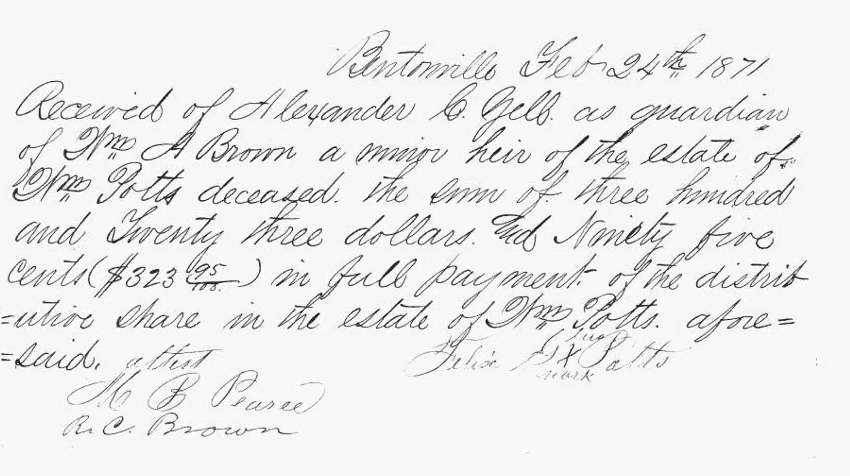 Bentonville Feb 24th 1871
Received of Alexander C. Yell. as guardian
of Wm A Brown a minor heir of the estate of
Wm Potts deceased. the sum of three hundred
and Twenty three dollars. And Ninety five
cents ($323 95/100.) in full payment of the distrib
=utive share in the estate of Wm Potts. afore=
=said. attest
Felix X Potts
mark
M B Pearce
R. C. Brown